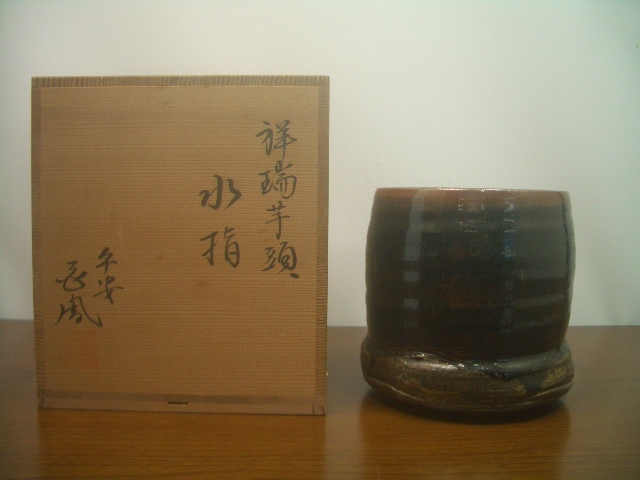 祥瑞芋頭
水指
平安
長鳳